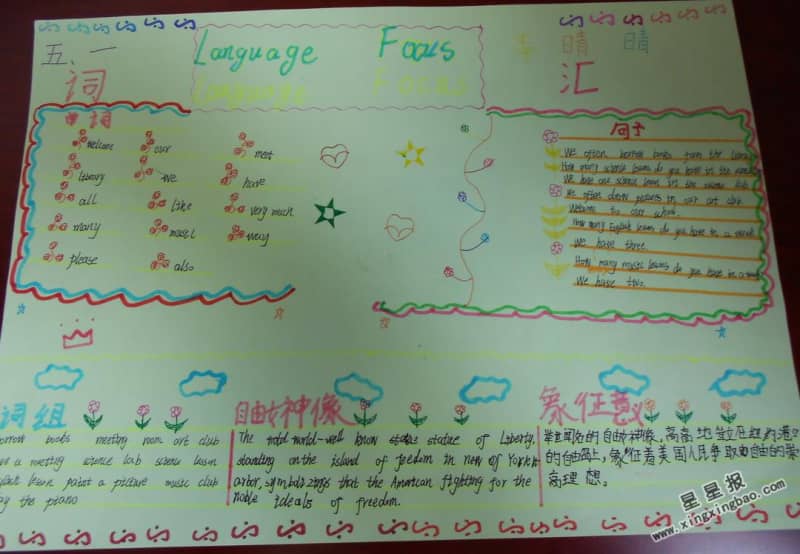 五、一
Language Focus
Language Focus
李晴晴
词汇
单词
welcome our meet
library we have
all like very much
many music
please also
句子
We often borrow books from the library
How many science lessons do you have in the
We have one science lesson in the science lab
We often draw pictures in our art club
Welcome to our school.
How many English lessons do you have in a week
We have three.
How many music lessons do you have in a week
We have two.
词组
books meeting room art club
a meeting science lab science lesson
lesson paint a picture music club
the piano
自由女神像
The world-well know statue of Liberty,
standing on the island of in new of York
arbor, that the American fighting for the
noble ideals of freedom.
象征意义
举世闻名的自由女神像，高高地耸立在纽约港口
的自由岛上，象征着美国人民争取自由的崇
高理想。
星星报
www.xingxingbao.com